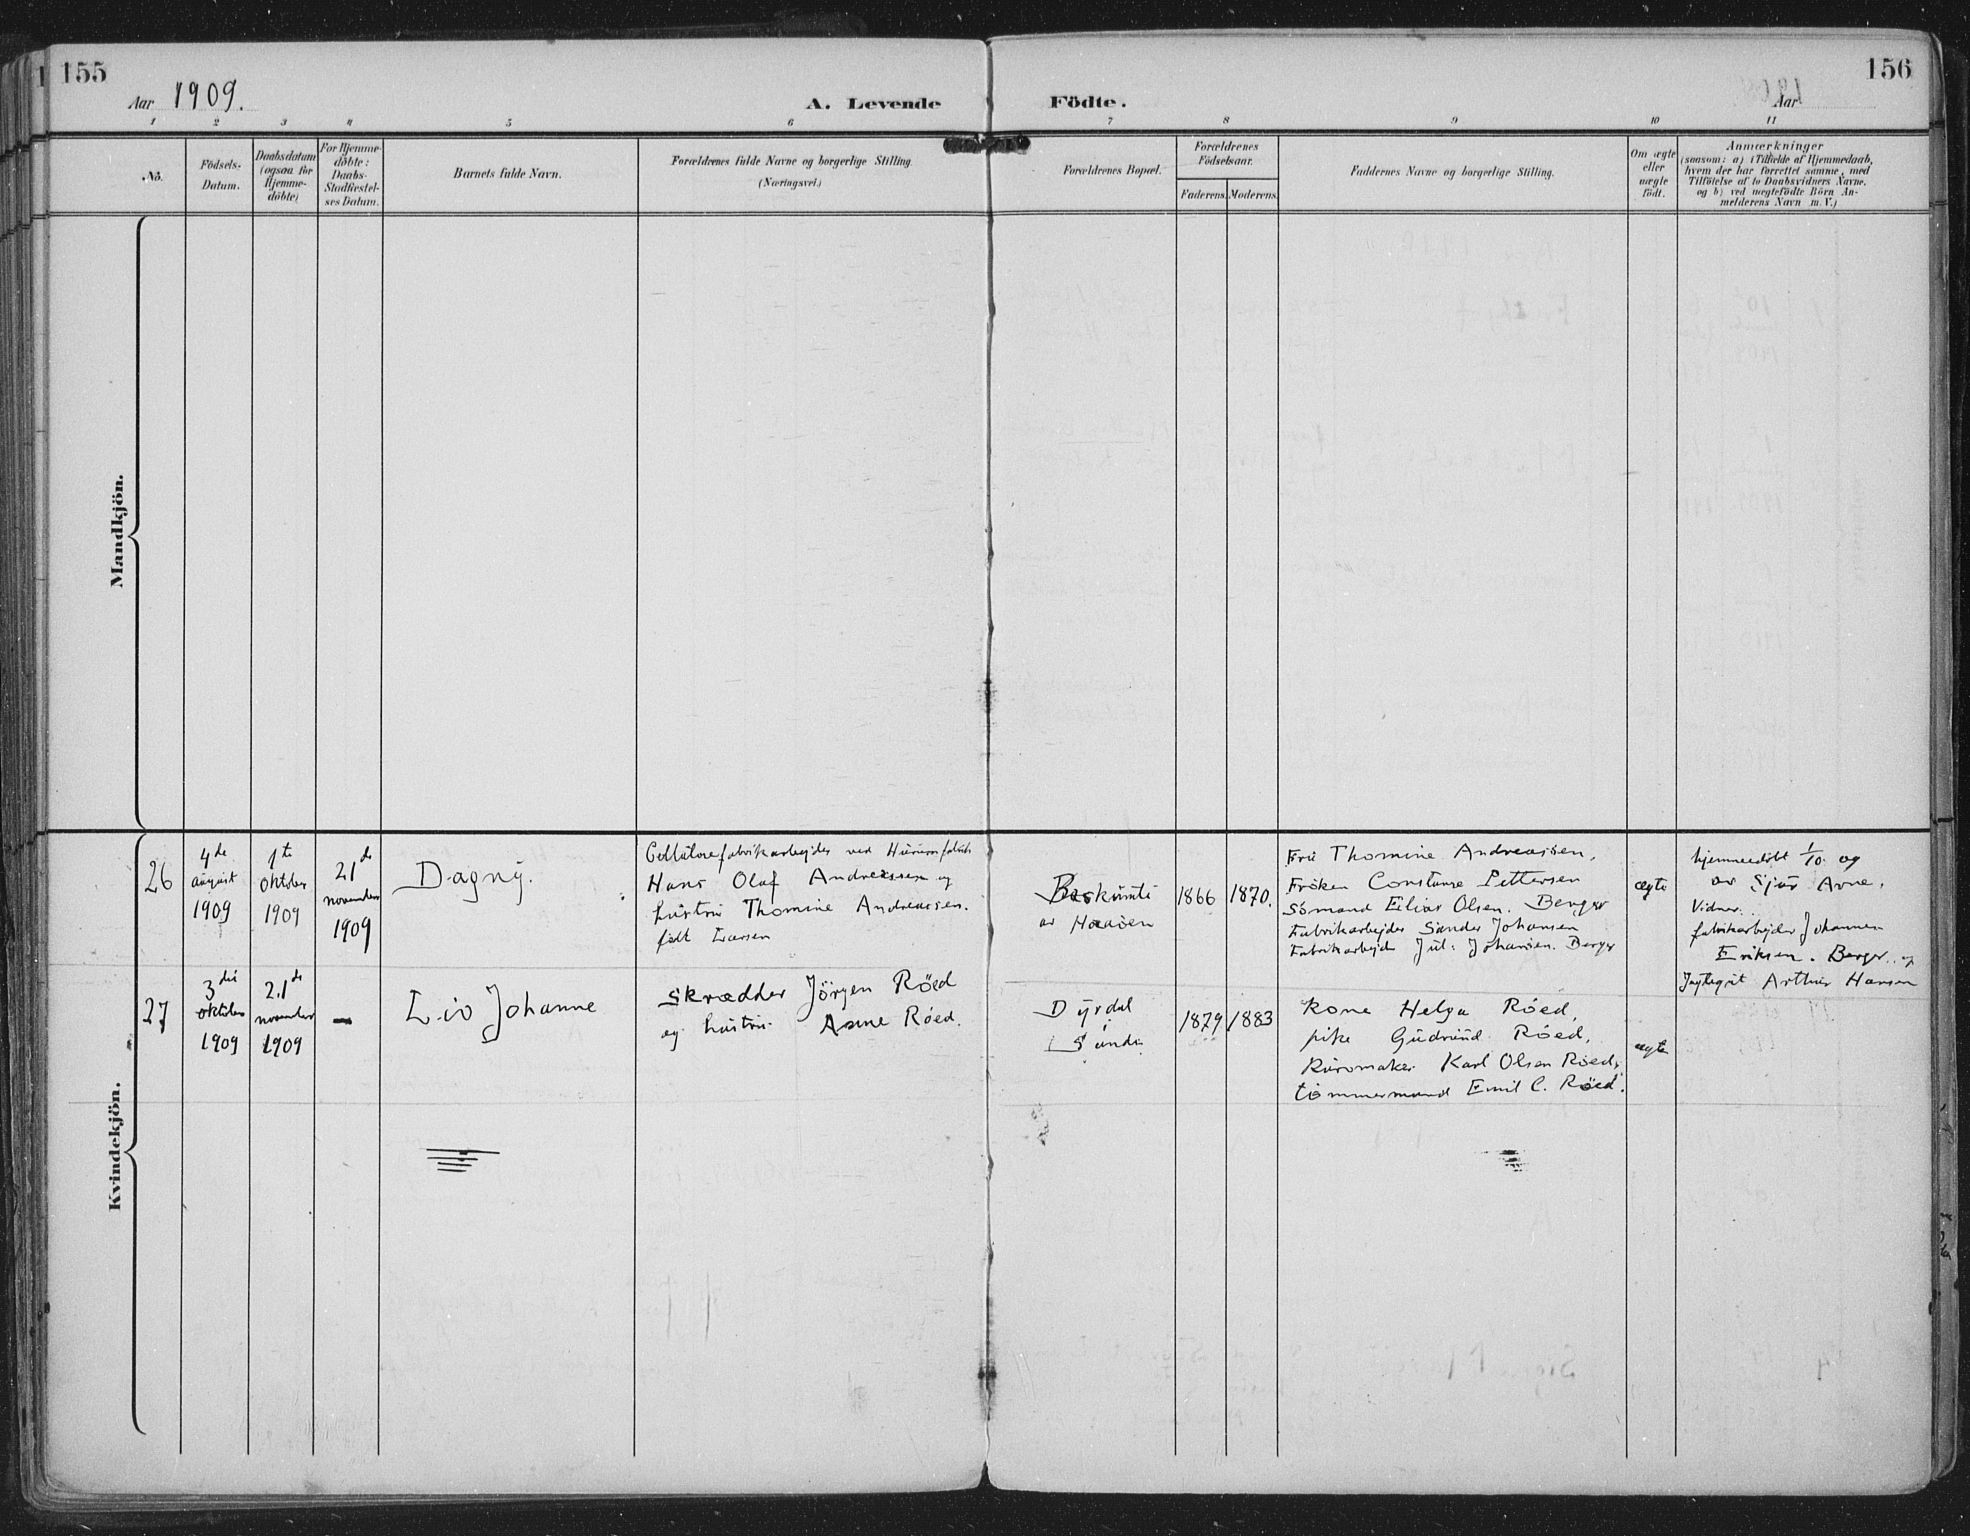 155
Aar 1909.
A. Levende Födte.
Aar
156
1 2 3 4 5 6 7 8 9 10 11
No.
Födsels-
Datum.
Daabsdatum
(ogsaa for
Hjemme-
döbte)
For Hjemme-
döbte:
Daabs-
Stadfæstel-
ses Datum.
Barnets fulde Navn.
Forældrenes fulde Navne og borgerlige Stilling.
(Næringsvei.)
Forældrenes Bopæl.
Forældrenes
Födselsaar.
Faderens. Moderens.
Faddernes Navne og borgerlige Stilling.
Om ægte
eller
uægte
födt.
Anmærkninger
(saasom: a) i Tilfælde af Hjemmedaab,
hvem der har forrettet samme, med
Tilföielse af to Daabsvidners Navne,
og b) ved uægtefödte Börn An-
melderens Navn m. V.)
Mandkjön.
Kvindekjön.
26
4de
august
1909
1te
oktober
1909
21de
november
1909
Dagny.
Cellulosefabrikarbejder ved Hurum fabrik
Hans Olaf Andreassen og
hustru Thomine Andreassen.
født Larsen
av Haasen
1866
1870.
Fru Thomine Andreassen,
Frøken Constanse Pettersen
Sømand Elias Olsen. Berger
Fabrikarbejder Sander Johansen
Fabrikarbejder Jul. Johansen. Berger
ægte
hjemmedøbt 1/10 og
av
Vidner:
fabrikarbejder Johannes
Eriksen. Berger og
Arthur Hansen
27
3die
oktober
1909
21de
november
1909
—
Liv Johanne
Skrædder Jörgen Röed
og hustru Anne Röed.
Dyrdal
Sande
1879
1883
Kone Helga Röed,
pike Gudrund Röed,
Karl Olsen Röed,
tømmermand Emil C. Röed.
ægte